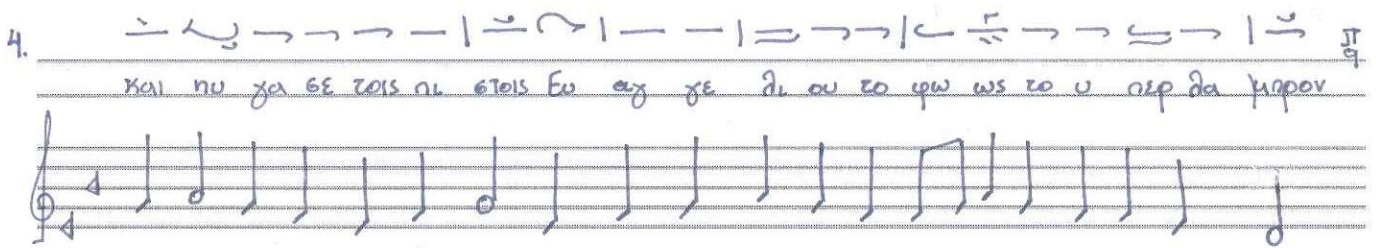 4.
και πυ γα σε τοις πι στοις Ευ αγ γε λι ου το φω ως το υ περ λα μπρον